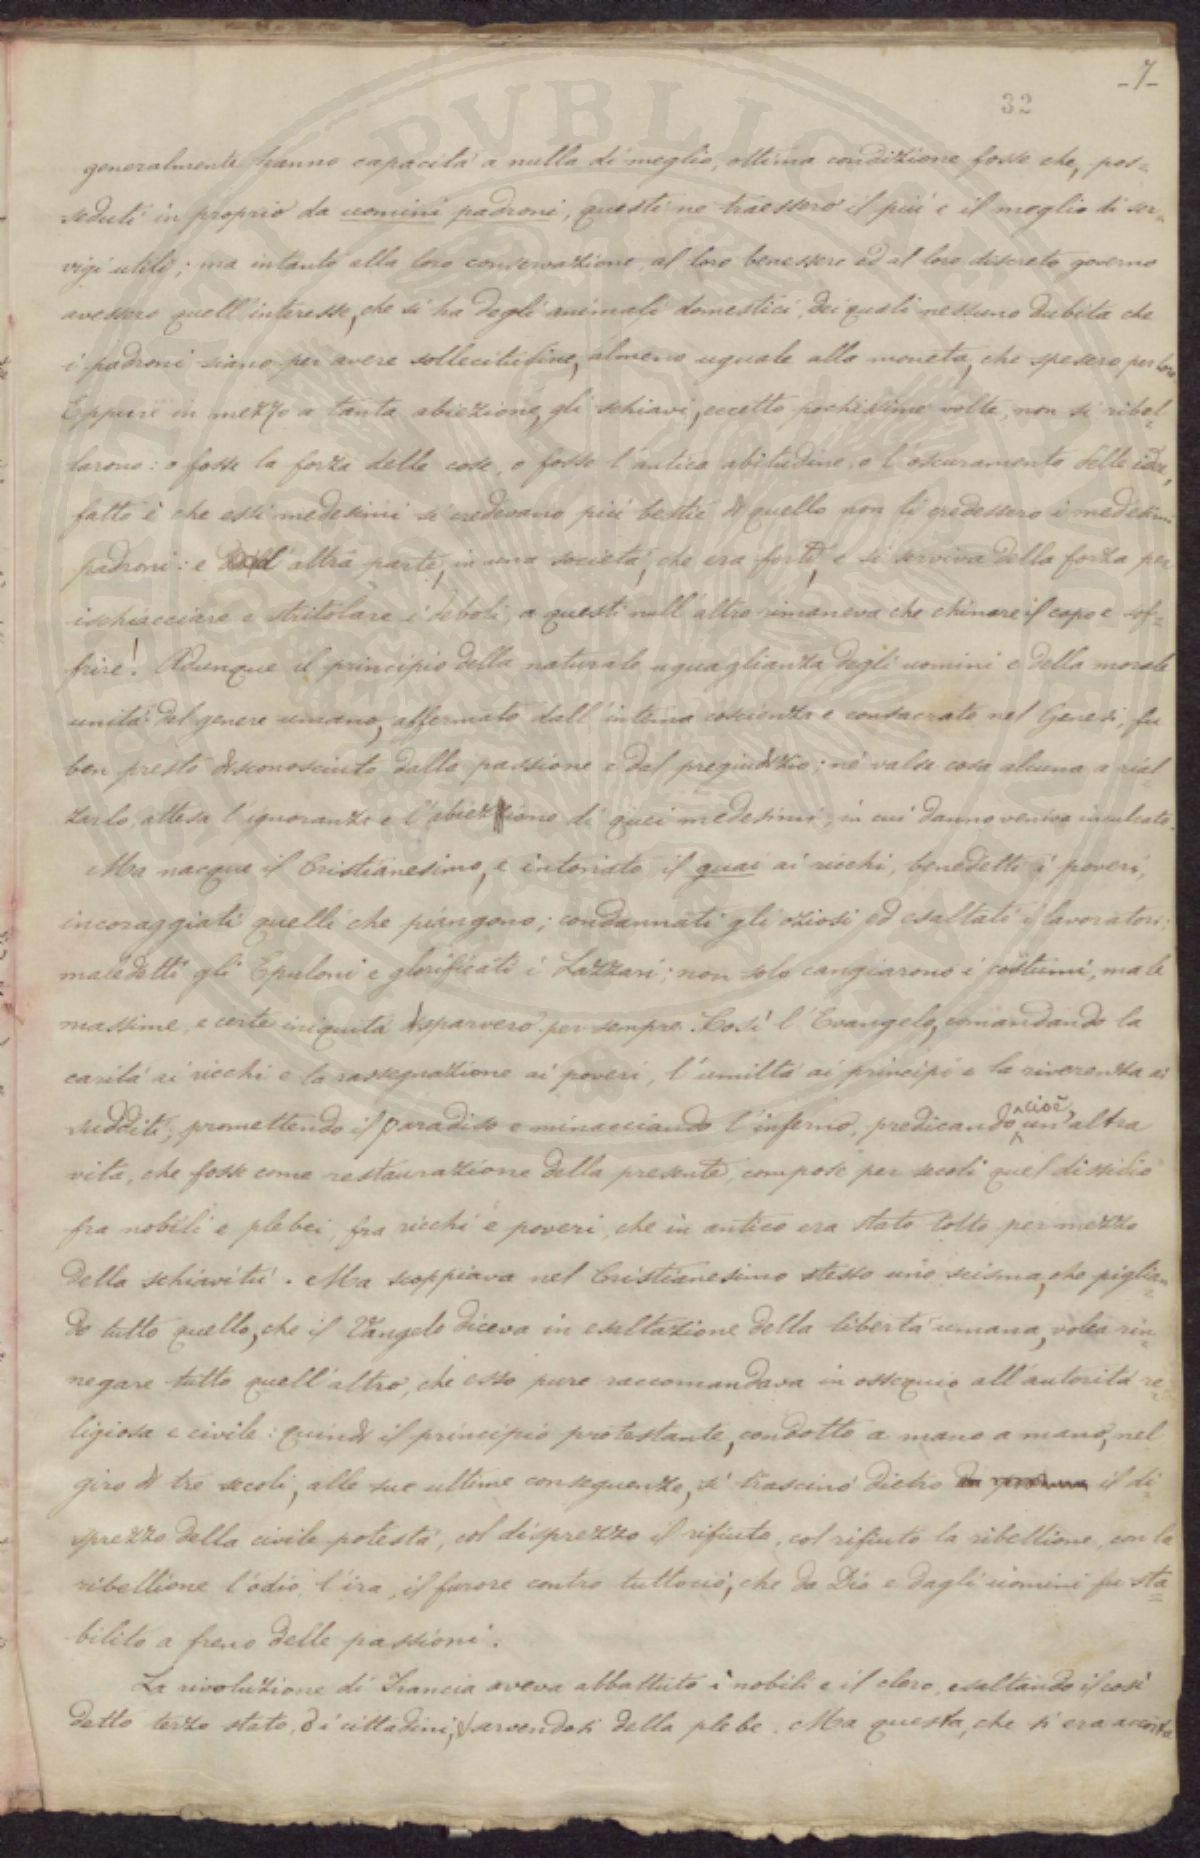 -7-
32
generalmente hanno capacità a nulla di meglio, ottima condizione fosse che, pos=
seduti in proprio da uomini padroni, questi ne traessero il più e il meglio di ser=
vigi utili; ma intanto alla loro conservazione, al loro benessere ed al loro discreto governo
avessero quell'interesse, che si ha degli animali domestici, dei quali nessuno dubita che
i padroni siano per avere sollecitudine, almeno uguale alla moneta, che spesero per loro
Eppure in mezzo a tanta abiezione, gli schiavi, eccetto pochissime volte, non si ribel=
larono: o fosse la forza delle cose, o fosse l'antica abitudine, o l'oscuramento delle idee,
fatto è che essi medesimi si credevano più bestie di quello non li credessero i medesimi
padroni: e d'altra parte, in una società, che era forte, e si serviva della forza per
ischiacciare e stritolare i deboli, a questi null'altro rimaneva che chinare il capo e sof=
frire! Adunque il principio della naturale uguaglianza degli uomini e della morale
unità del genere umano, affermato dall'interna coscienza e consacrato nel Genesi, fu
ben presto disconosciuto dalla passione e dal pregiudizio; nè valse cosa alcuna a rial=
zarlo, attesa l'ignoranza e l'abiezione di quei medesimi, in cui danno veniva inculcato.
Ma nacque il Cristianesimo, e intonato il guai ai ricchi, benedetti i poveri,
incoraggiati quelli che piangono; condannati gli oziosi ed esaltati i lavoratori;
maledetti gli Epuloni e glorificati i Lazzari; non solo cangiarono i costumi, ma le
massime, e certe iniquità disparvero per sempre. Così l'Evangelo, comandando la
carità ai ricchi e la rassegnazione ai poveri, l'umiltà ai principi e la riverenza ai
sudditi; promettendo il paradiso e minacciando l'inferno, predicando cioè, un'altra
vita, che fosse come restaurazione della presente, compose per secoli quel dissidio
fra nobili e plebei, fra ricchi e poveri, che in antico era stato tolto per mezzo
della schiavitù. Ma scoppiava nel Cristianesimo stesso uno scisma, che piglian=
do tutto quello, che il Vangelo diceva in esaltazione della libertà umana, volea rin=
negare tutto quell'altro, che esso pure raccomandava in ossequio all'autorità re=
ligiosa e civile: quindi il principio protestante, condotto a mano a mano, nel
giro di tre secoli, alle sue ultime conseguenze, si trascinò dietro il di=
sprezzo della civile potestà, col disprezzo il rifiuto, col rifiuto la ribellione, con la
ribellione l'odio, l'ira, il furore contro tuttociò, che da Dio e dagli uomini fu sta=
bilito a freno delle passioni.
La rivoluzione di Francia aveva abbattuto i nobili e il clero, esaltando il così
detto terzo stato, o i cittadini, servendosi della plebe. Ma questa, che si era accorta